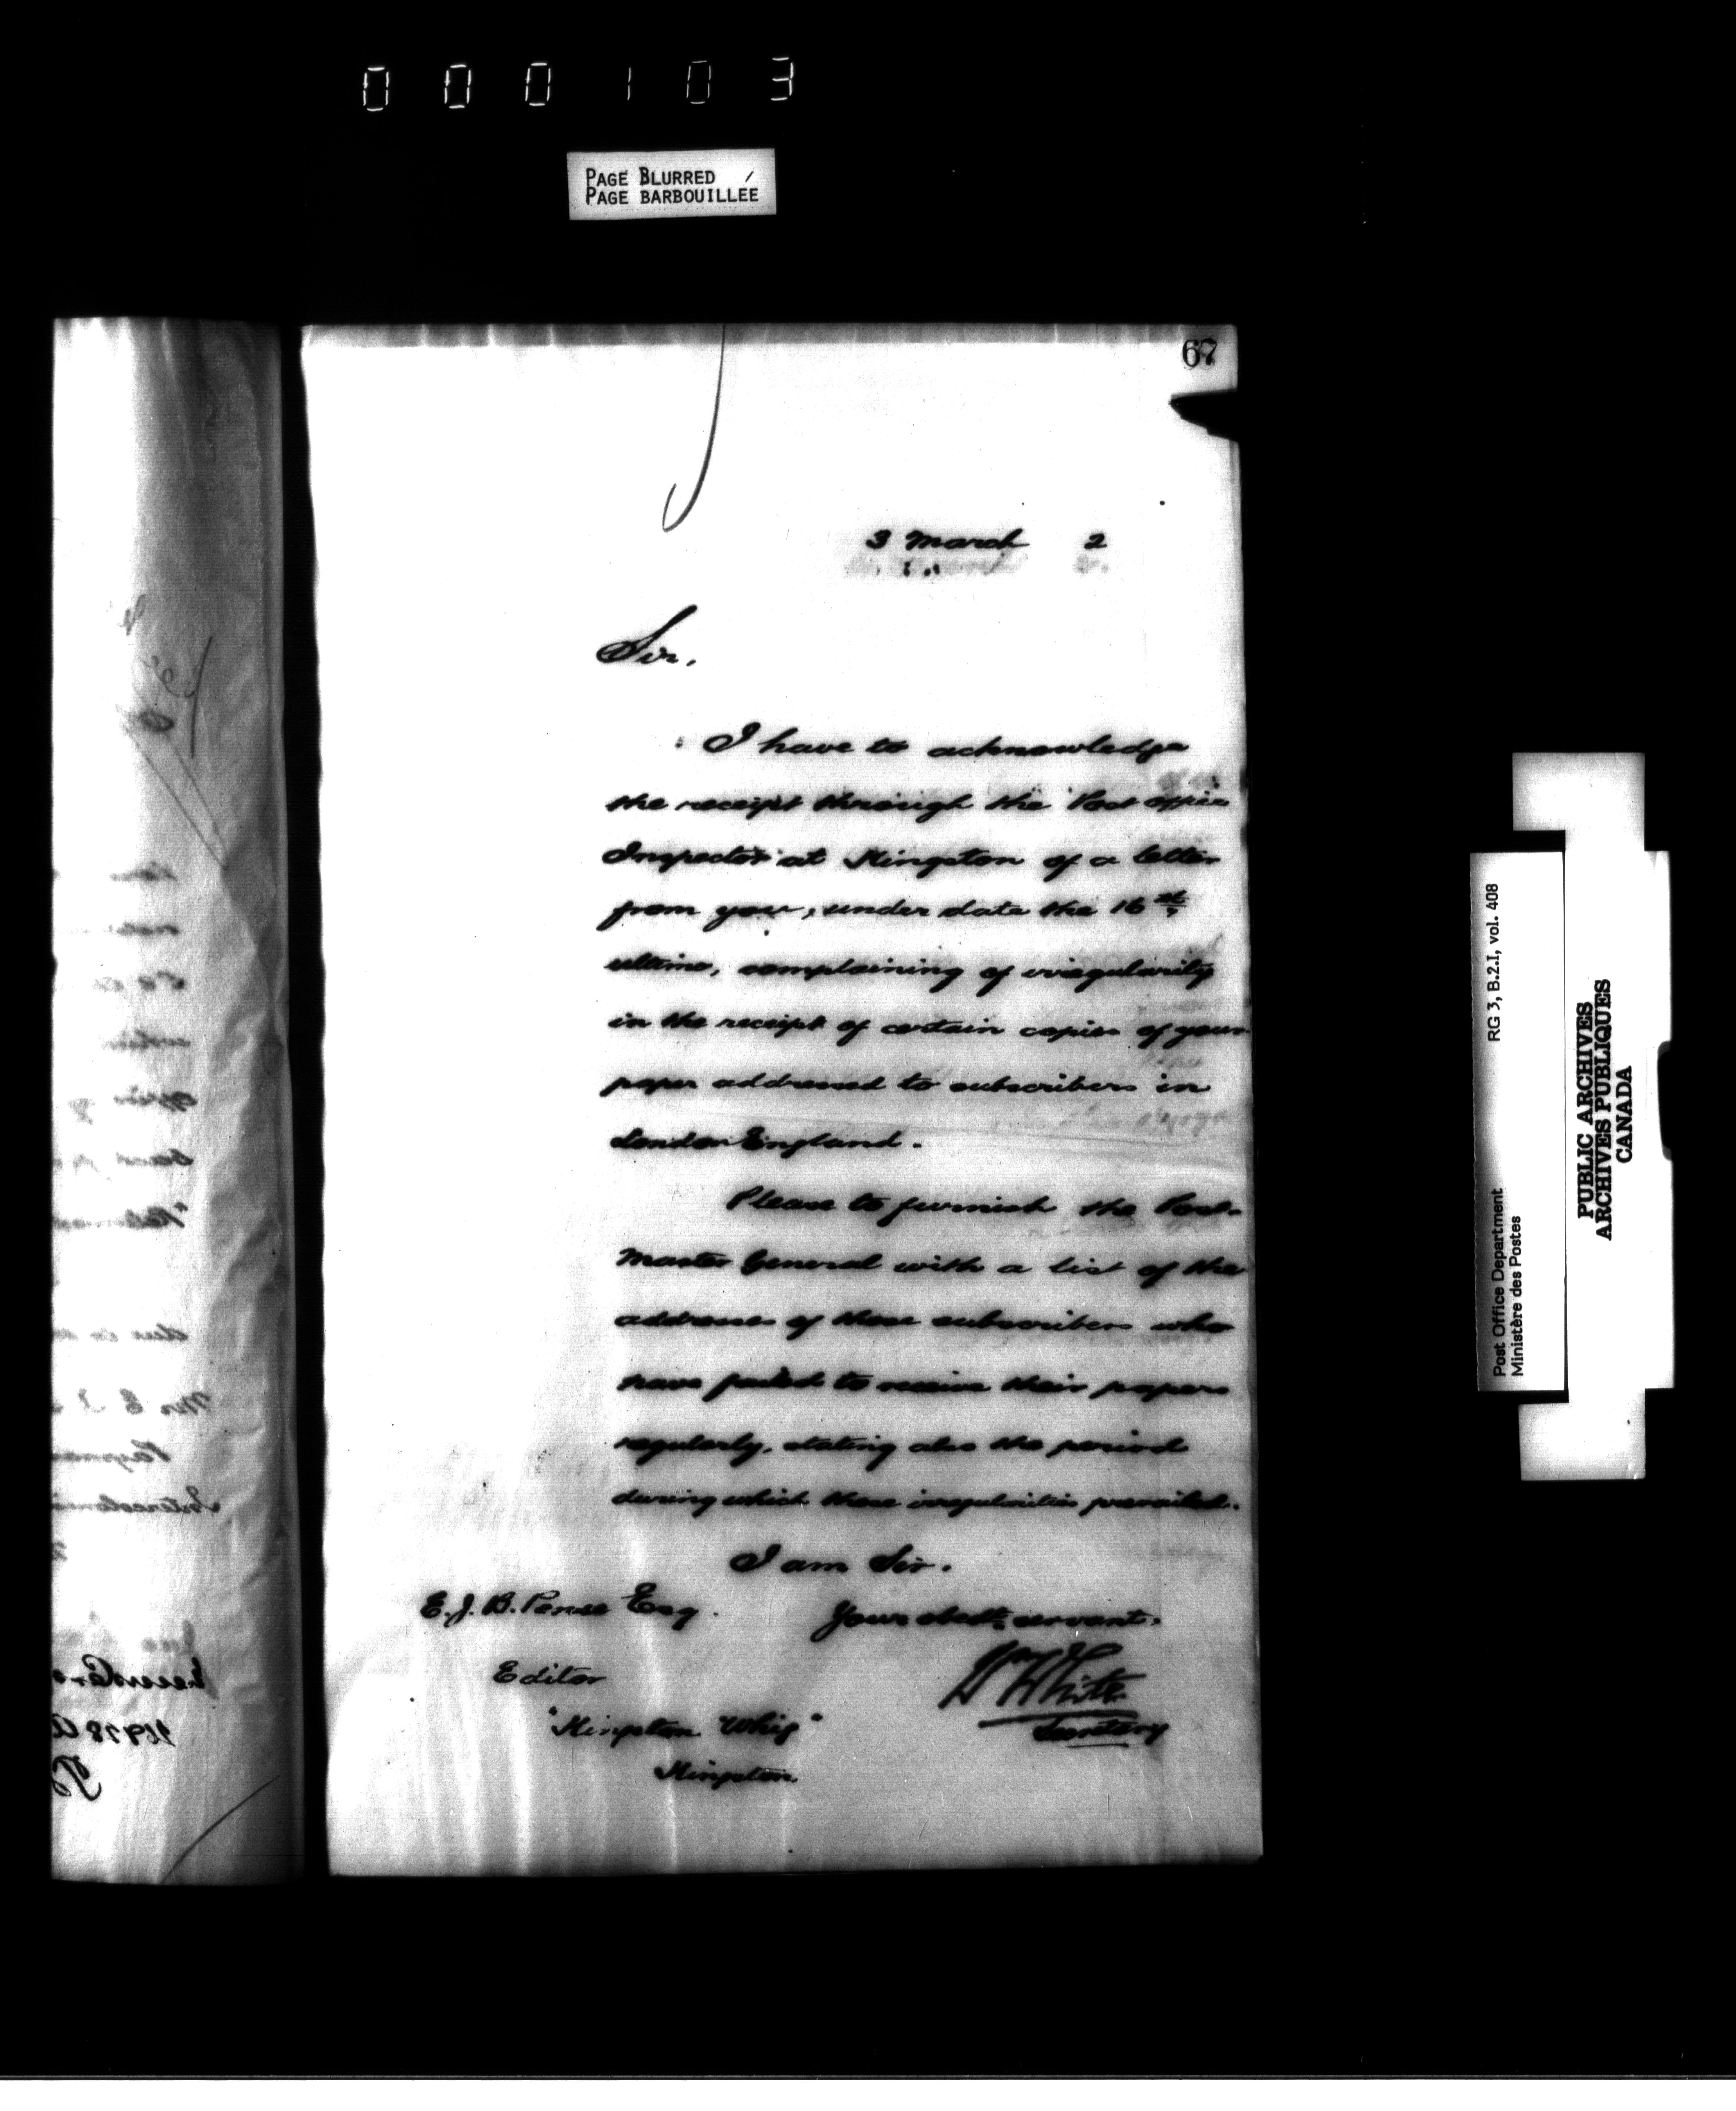 000103
PAGE BLURRED
PAGE BARBOUILLÉE
67
3 March 2
Sir,
I have to acknowledge
the receipt through the Post Office
Inspector at Kingston of a letter
from you, under date the 16th
ultimo, complaining of irregularity
in the receipt of certain copies of your
paper addressed to subscribers in
London England.
Please to furnish the Post-
Master General with a list of the
addresses of those subscribers who
have failed to receive their papers
regularly, stating also the period
during which these irregularities prevailed.
I am Sir.
Your obedt. servant.
Wm White
Secretary
E. J. B. Pense Esq.
Editor
"Kingston Whig"
Kingston.
Post Office Department RG 3, B.2.I, vol. 408
Ministère des Postes
PUBLIC ARCHIVES
ARCHIVES PUBLIQUES
CANADA